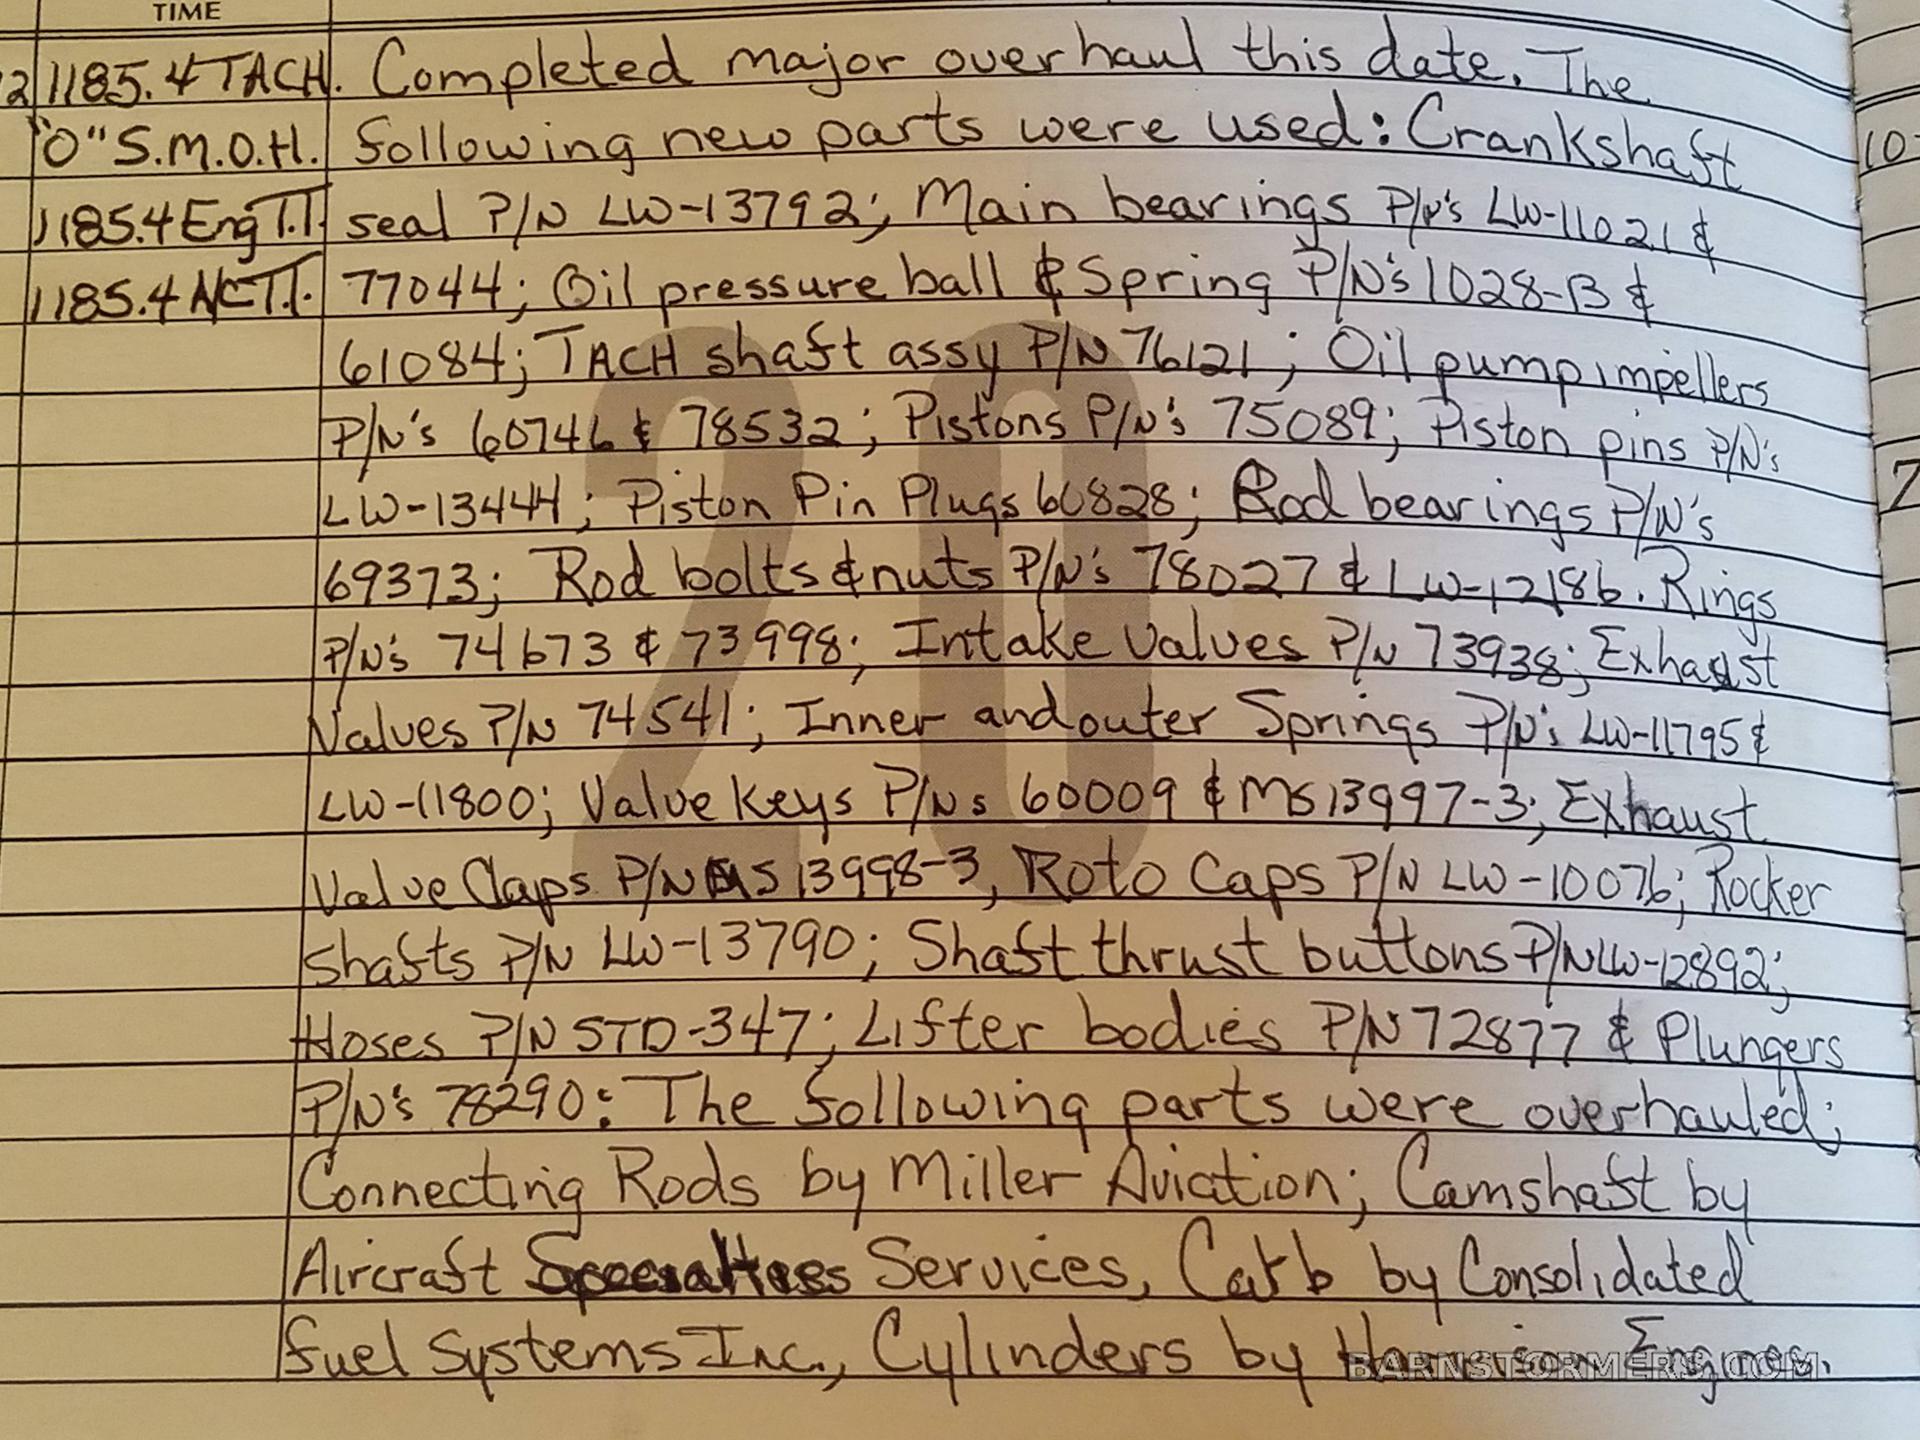 TIME
2 1185.4 TACH. Completed major overhaul this date. The
"O" S.M.O.H. following new parts were used: Crankshaft
1185.4 Eng T.T. seal P/N LW-13792; Main bearings P/N's LW-11021 &
1185.4 ACT.T. 77044; Oil pressure ball & Spring P/N's 1028-B &
61084; TACH shaft assy P/N 76121; Oil pump impellers
P/N's 60746 & 78532; Pistons P/N's 75089; Piston pins P/N's
LW-13444; Piston Pin Plugs 60828; Rod bearings P/N's
69373; Rod bolts & nuts P/N's 78027 & LW-12186. Rings
P/N's 74673 & 73998; Intake Valves P/N 73938; Exhaust
Valves P/N 74541; Inner and outer Springs P/N's LW-11795 &
LW-11800; Valve Keys P/Ns 60009 & MS13997-3; Exhaust
Valve Caps P/N MS 13998-3, Roto Caps P/N LW-10076; Rocker
shafts P/N LW-13790; Shaft thrust buttons P/N LW-12892;
Hoses P/N STD-347; Lifter bodies P/N 72877 & Plungers
P/N's 78290: The following parts were overhauled;
Connecting Rods by Miller Aviation; Camshaft by
Aircraft Specialties Services, Carb by Consolidated
fuel Systems Inc., Cylinders by Engines.
BARNSTORMERS.COM
10
7